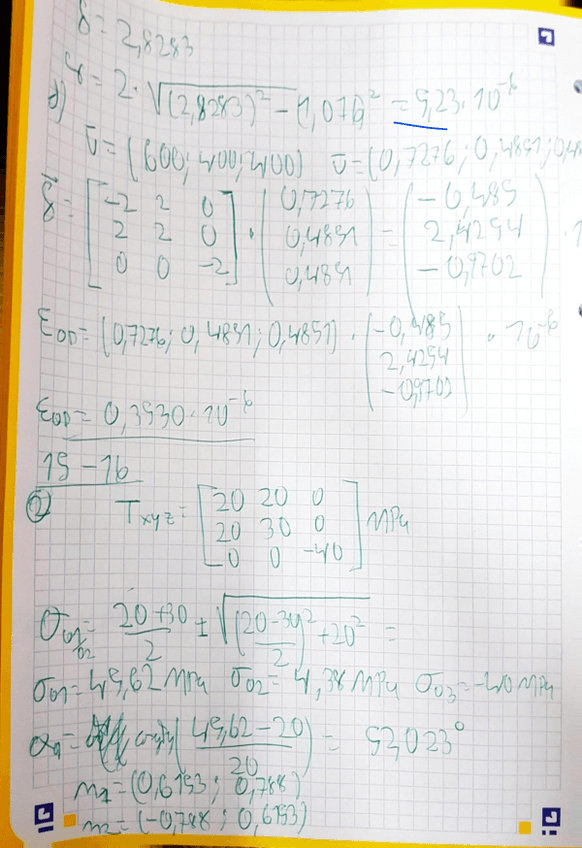 δ = 2,8283
γ = 2 · √((2,8283)² − (1,076)² = 5,23 · 10⁻⁶
f) ū = (600; 400; 400) ū = (0,7276; 0,4851; 0,48
δ̄ = [−2 2 0; 2 2 0; 0 0 −2] · (0,7276; 0,4851; 0,4851) = (−0,485; 2,4254; −0,9702) · 1
ε_OD = (0,7276; 0,4851; 0,4851) · (−0,485; 2,4254; −0,9702) · 10⁻⁶
ε_OD = 0,3530 · 10⁻⁶
15 – 16
② T_xyz = [20 20 0; 20 30 0; 0 0 −40] MPa
σ_01,02 = (20 + 30)/2 ± √(((20−30)/2)² + 20²) =
σ_01 = 45,62 MPa σ_02 = 4,38 MPa σ_03 = −40 MPa
= 52,023°
n₁ = (0,6153; 0,788)
n₂ = (−0,788; 0,6153)